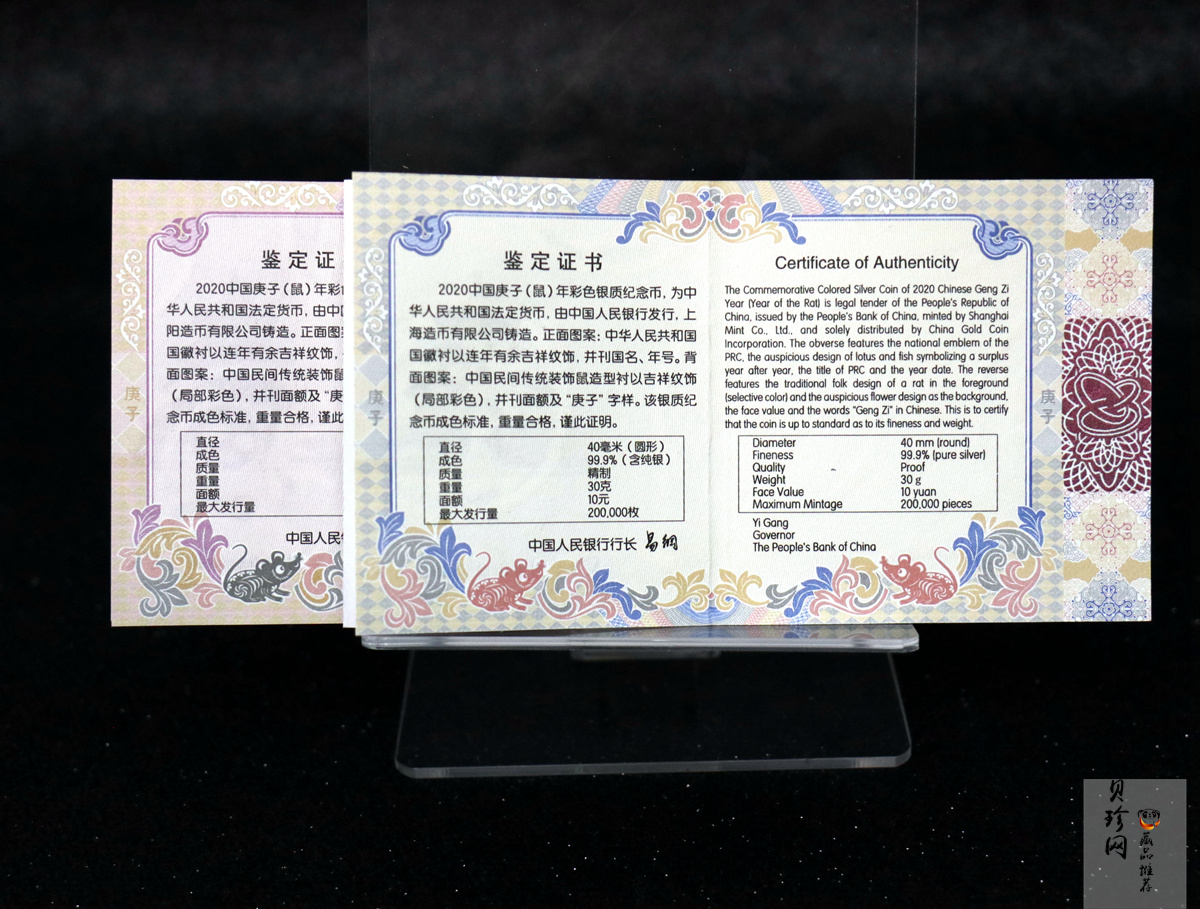 鉴定证
2020中国庚子（鼠）年彩
华人民共和国法定货币，由中
阳造币有限公司铸造。正面图
国徽衬以连年有余吉祥纹饰，
面图案：中国民间传统装饰鼠
（局部彩色），并刊面额及“庚
念币成色标准，重量合格，谨此
直径
成色
质量
重量
面额
最大发行量
中国人民
庚子
鉴定证书
2020中国庚子（鼠）年彩色银质纪念币，为中
华人民共和国法定货币，由中国人民银行发行，上
海造币有限公司铸造。正面图案：中华人民共和国
国徽衬以连年有余吉祥纹饰，并刊国名、年号。背
面图案：中国民间传统装饰鼠造型衬以吉祥纹饰
（局部彩色），并刊面额及“庚子”字样。该银质纪
念币成色标准，重量合格，谨此证明。
直径 40毫米（圆形）
成色 99.9%（含纯银）
质量 精制
重量 30克
面额 10元
最大发行量 200,000枚
中国人民银行行长 易纲
庚子
Certificate of Authenticity
The Commemorative Colored Silver Coin of 2020 Chinese Geng Zi
Year (Year of the Rat) is legal tender of the People's Republic of
China, issued by the People's Bank of China, minted by Shanghai
Mint Co., Ltd., and solely distributed by China Gold Coin
Incorporation. The obverse features the national emblem of the
PRC, the auspicious design of lotus and fish symbolizing a surplus
year after year, the title of PRC and the year date. The reverse
features the traditional folk design of a rat in the foreground
(selective color) and the auspicious flower design as the background,
the face value and the words "Geng Zi" in Chinese. This is to certify
that the coin is up to standard as to its fineness and weight.
Diameter 40 mm (round)
Fineness 99.9% (pure silver)
Quality Proof
Weight 30 g
Face Value 10 yuan
Maximum Mintage 200,000 pieces
Yi Gang
Governor
The People's Bank of China
庚子
贝珍网
藏品推荐